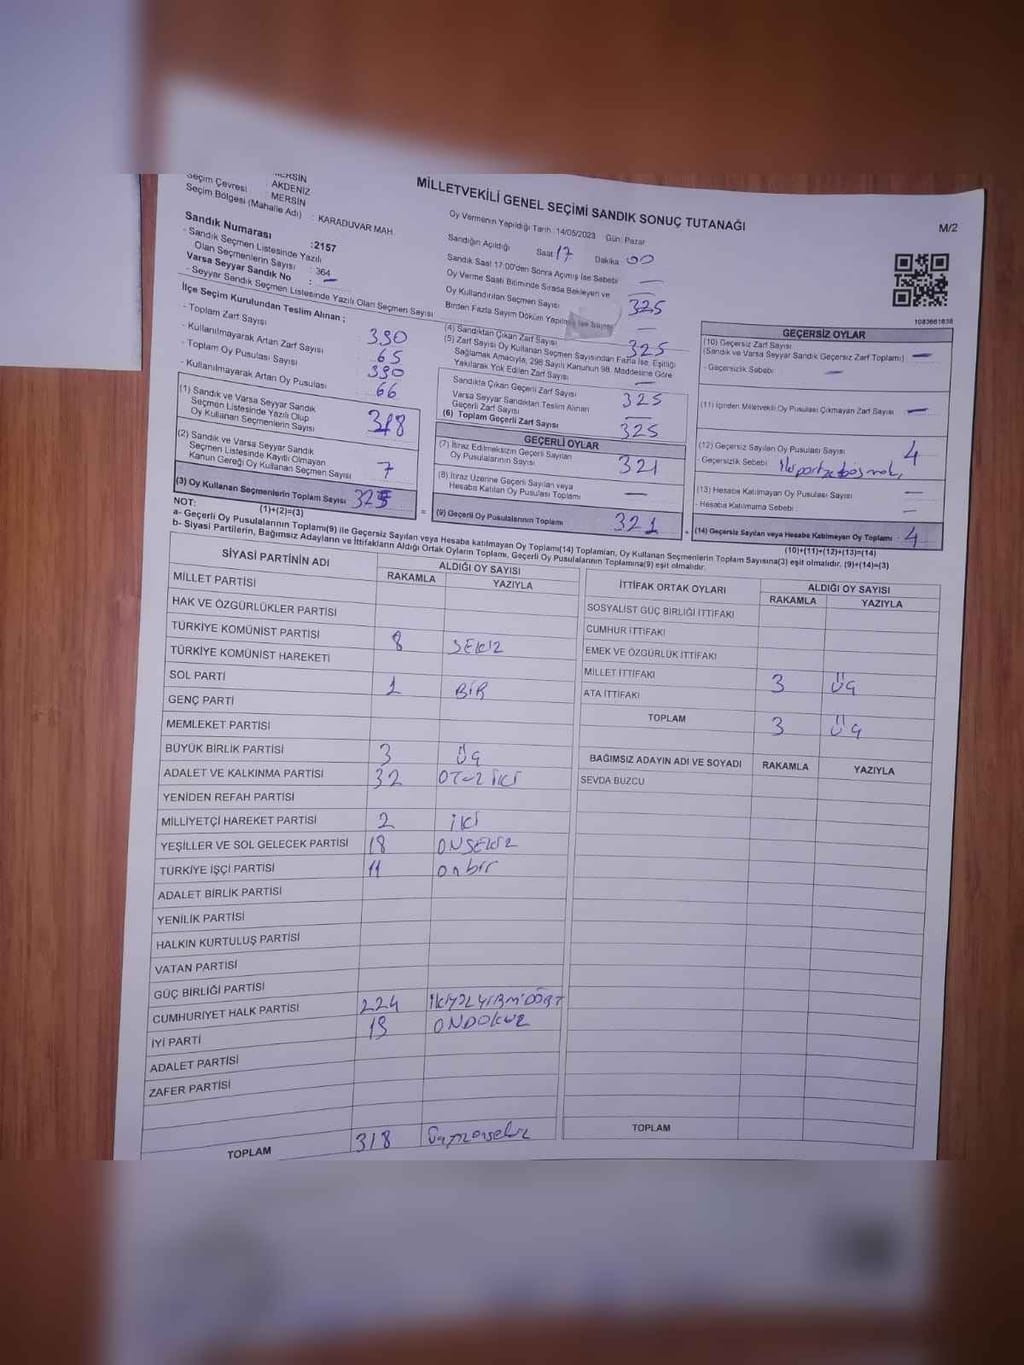 MERSİN
Seçim Çevresi : AKDENİZ
Seçim Bölgesi (Mahalle Adı) : MERSİN
KARADUVAR MAH.
MİLLETVEKİLİ GENEL SEÇİMİ SANDIK SONUÇ TUTANAĞI
M/2
Oy Vermenin Yapıldığı Tarih : 14/05/2023 Gün: Pazar
Sandığın Açıldığı Saat 17 Dakika 00
Sandık Saat 17:00'den Sonra Açılmış İse Sebebi —
Oy Verme Saati Bitiminde Sırada Bekleyen ve
Oy Kullandırılan Seçmen Sayısı —
325
Birden Fazla Sayım Döküm Yapılmış İse Sayısı —
Sandık Numarası :2157
- Sandık Seçmen Listesinde Yazılı
Olan Seçmenlerin Sayısı : 364
Varsa Seyyar Sandık No : —
- Seyyar Sandık Seçmen Listesinde Yazılı Olan Seçmen Sayısı
İlçe Seçim Kurulundan Teslim Alınan ;
- Toplam Zarf Sayısı 390
- Kullanılmayarak Artan Zarf Sayısı 65
- Toplam Oy Pusulası Sayısı 390
- Kullanılmayarak Artan Oy Pusulası 66
(1) Sandık ve Varsa Seyyar Sandık
Seçmen Listesinde Yazılı Olup
Oy Kullanan Seçmenlerin Sayısı 318
(2) Sandık ve Varsa Seyyar Sandık
Seçmen Listesinde Kayıtlı Olmayan
Kanun Gereği Oy Kullanan Seçmen Sayısı 7
(3) Oy Kullanan Seçmenlerin Toplam Sayısı 325
(1)+(2)=(3)
(4) Sandıktan Çıkan Zarf Sayısı 325
(5) Zarf Sayısı Oy Kullanan Seçmen Sayısından Fazla İse, Eşitliği
Sağlamak Amacıyla, 298 Sayılı Kanunun 98. Maddesine Göre
Yakılarak Yok Edilen Zarf Sayısı —
Sandıkta Çıkan Geçerli Zarf Sayısı 325
Varsa Seyyar Sandıktan Teslim Alınan
Geçerli Zarf Sayısı —
(6) Toplam Geçerli Zarf Sayısı 325
GEÇERLİ OYLAR
(7) İtiraz Edilmeksizin Geçerli Sayılan
Oy Pusulalarının Sayısı 321
(8) İtiraz Üzerine Geçerli Sayılan veya
Hesaba Katılan Oy Pusulası Toplamı —
(9) Geçerli Oy Pusulalarının Toplamı 321
1083661638
GEÇERSİZ OYLAR
(10) Geçersiz Zarf Sayısı
(Sandık ve Varsa Seyyar Sandık Geçersiz Zarf Toplamı) —
- Geçersizlik Sebebi —
(11) İçinden Milletvekili Oy Pusulası Çıkmayan Zarf Sayısı —
(12) Geçersiz Sayılan Oy Pusulası Sayısı 4
- Geçersizlik Sebebi
(13) Hesaba Katılmayan Oy Pusulası Sayısı —
- Hesaba Katılmama Sebebi —
(14) Geçersiz Sayılan veya Hesaba Katılmayan Oy Toplamı 4
(10)+(11)+(12)+(13)=(14)
NOT:
a- Geçerli Oy Pusulalarının Toplamı(9) ile Geçersiz Sayılan veya Hesaba katılmayan Oy Toplamı(14) Toplamları, Oy Kullanan Seçmenlerin Toplam Sayısına(3) eşit olmalıdır. (9)+(14)=(3)
b- Siyasi Partilerin, Bağımsız Adayların ve İttifakların Aldığı Ortak Oyların Toplamı, Geçerli Oy Pusulalarının Toplamına(9) eşit olmalıdır.
SİYASİ PARTİNİN ADI ALDIĞI OY SAYISI
RAKAMLA YAZIYLA
MİLLET PARTİSİ
HAK VE ÖZGÜRLÜKLER PARTİSİ
TÜRKİYE KOMÜNİST PARTİSİ 8 SEKİZ
TÜRKİYE KOMÜNİST HAREKETİ
SOL PARTİ 1 BİR
GENÇ PARTİ
MEMLEKET PARTİSİ
BÜYÜK BİRLİK PARTİSİ 3 ÜÇ
ADALET VE KALKINMA PARTİSİ 32 OTUZ İKİ
YENİDEN REFAH PARTİSİ
MİLLİYETÇİ HAREKET PARTİSİ 2 İKİ
YEŞİLLER VE SOL GELECEK PARTİSİ 18 ONSEKİZ
TÜRKİYE İŞÇİ PARTİSİ 11 onbir
ADALET BİRLİK PARTİSİ
YENİLİK PARTİSİ
HALKIN KURTULUŞ PARTİSİ
VATAN PARTİSİ
GÜÇ BİRLİĞİ PARTİSİ
CUMHURİYET HALK PARTİSİ 224 İKİYÜZ YİRMİDÖRT
İYİ PARTİ 19 ONDOKUZ
ADALET PARTİSİ
ZAFER PARTİSİ
TOPLAM 318
İTTİFAK ORTAK OYLARI ALDIĞI OY SAYISI
RAKAMLA YAZIYLA
SOSYALİST GÜÇ BİRLİĞİ İTTİFAKI
CUMHUR İTTİFAKI
EMEK VE ÖZGÜRLÜK İTTİFAKI
MİLLET İTTİFAKI 3 ÜÇ
ATA İTTİFAKI
TOPLAM 3 ÜÇ
BAĞIMSIZ ADAYIN ADI VE SOYADI RAKAMLA YAZIYLA
SEVDA BUZCU
TOPLAM